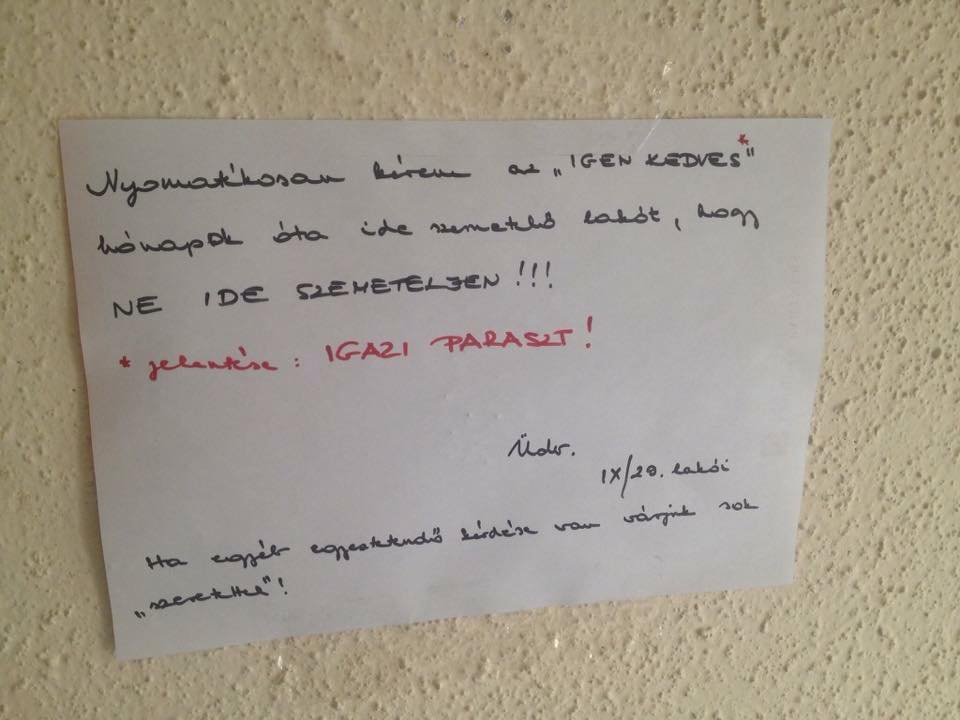 Nyomatékosan kérem az „IGEN KEDVES*"
hónapok óta ide szemetelő lakót, hogy
NE IDE SZEMETELJEN!!!
* jelentése: IGAZI PARASZT!
Üdv.
IX/29. lakói
Ha egyéb egyeztetendő kérdése van várjuk sok
„szeretettel"!